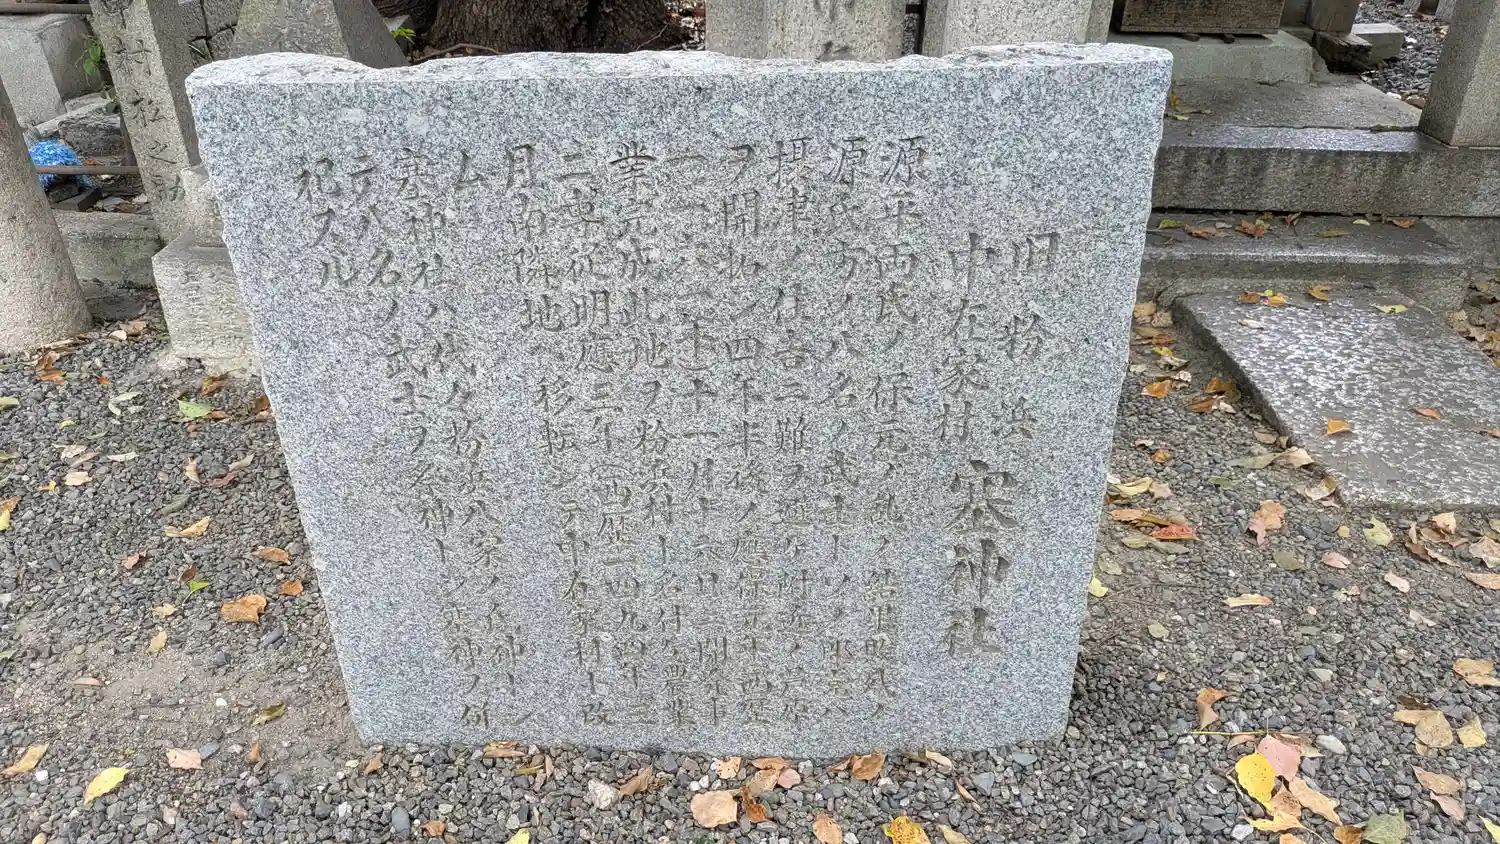 旧粉浜
中在家村 塞神社
源平両氏ノ保元ノ乱ノ結果敗残ノ
源氏方ノ八名ノ武士トソノ郎党ハ
摂津ノ住吉ニ難ヲ避ケ附近ノ
ヲ開拓シ四年半後ノ應保元年西歴
(一一六一年)十一月十六日ニ開
業完成此地ヲ粉浜村ト名付ケ農業
ニ専従明應三年(西歴一四九四年)三
月南隣地ヘ移転シテ中在家村ト改
ム
塞神社ハ代々粉浜八家ノ氏神トシ
八名ノ武士ヲ祭神トシ 神ヲ併
祀スル
村松之